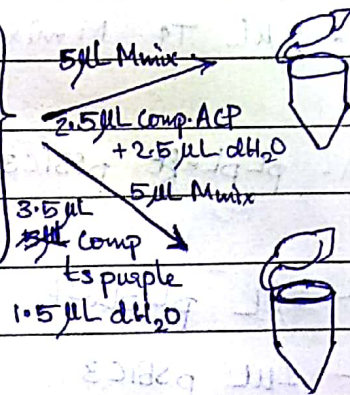 5µL Mmix
2.5µL Comp. ACP
+2.5µL dH2O
5µL Mmix
3.5 µL
5µL Comp
ts purple
1.5µL dH2O